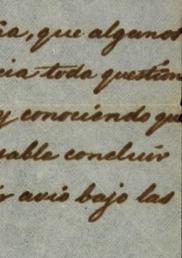 ia, que algunos
cia toda question
y conociendo qu
sable concluir
ir avio bajo las